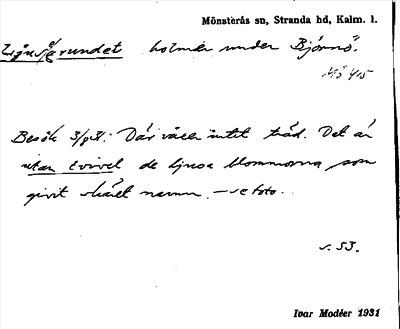 Mönsterås sn, Stranda hd, Kalm. l.
holmar under Björnö.
Besök 3/931. Där växer intet träd. Det är
utan tvivel de ljusa blommorna som
givit skäret namn. — se foto.
s. 53.
Ivar Modéer 1931